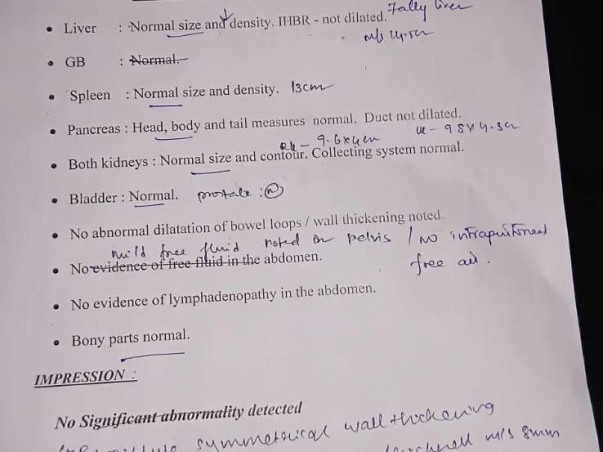 • Liver : Normal size and ↓ density. IHBR - not dilated. Fatty liver
m/s
• GB : Normal.
• Spleen : Normal size and density. 13cm
• Pancreas : Head, body and tail measures normal. Duct not dilated.
Rk - 9.6x4cm lk - 9.8x4.3cm
• Both kidneys : Normal size and contour. Collecting system normal.
• Bladder : Normal. prostate : Ⓝ
• No abnormal dilatation of bowel loops / wall thickening noted.
mild free fluid noted in pelvis / no intraperitoneal
free air.
• No evidence of free fluid in the abdomen.
• No evidence of lymphadenopathy in the abdomen.
• Bony parts normal.
IMPRESSION :
No Significant abnormality detected
symmetrical wall thickening
m/s 8mm